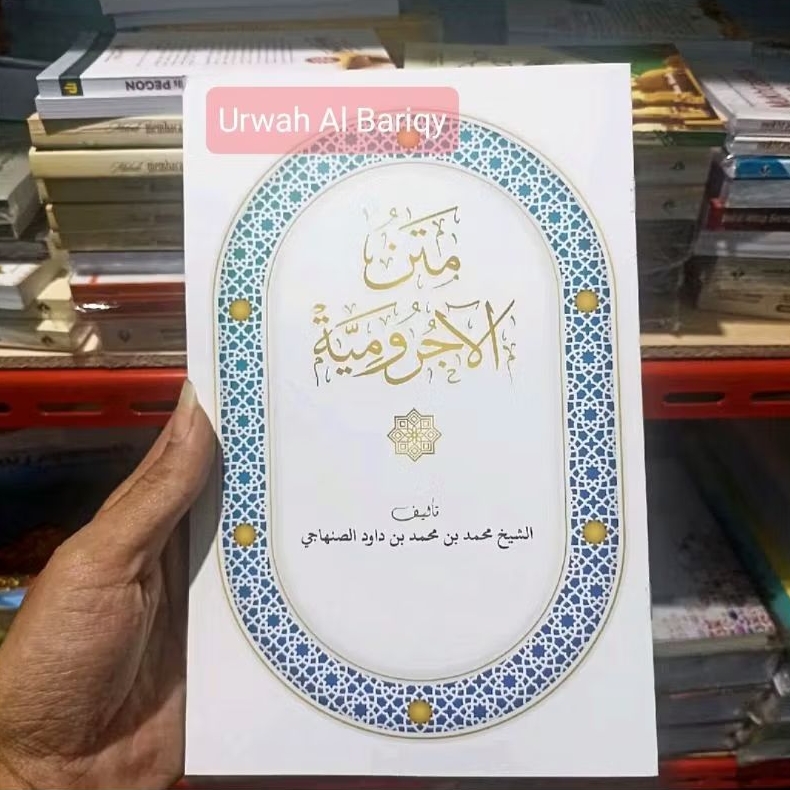 Urwah Al Bariqy
مَتَنُ
الآجُرُّومِيَّةِ
تأليف
الشيخ محمد بن محمد بن داود الصنهاجي
PEGON